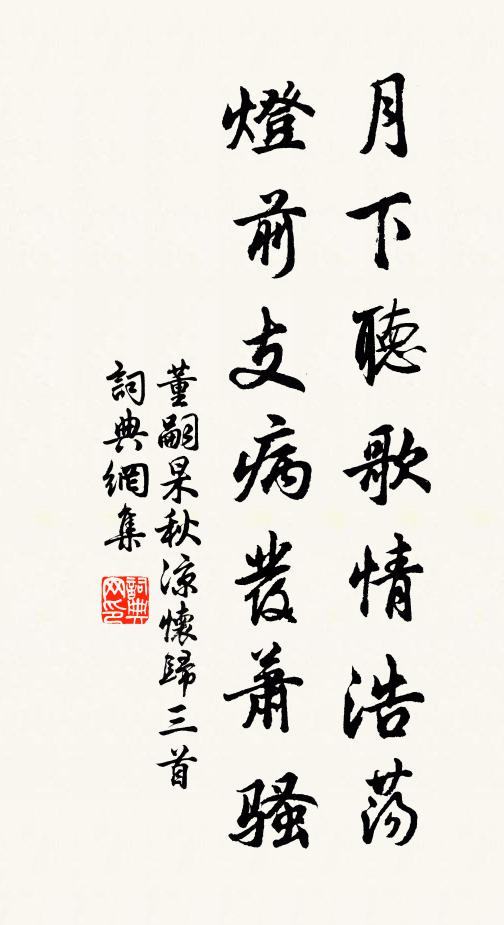 月下聽歌情浩蕩
燈前支病發蕭騷
董嗣杲秋涼懷歸三首
詞典網集
詞典網印